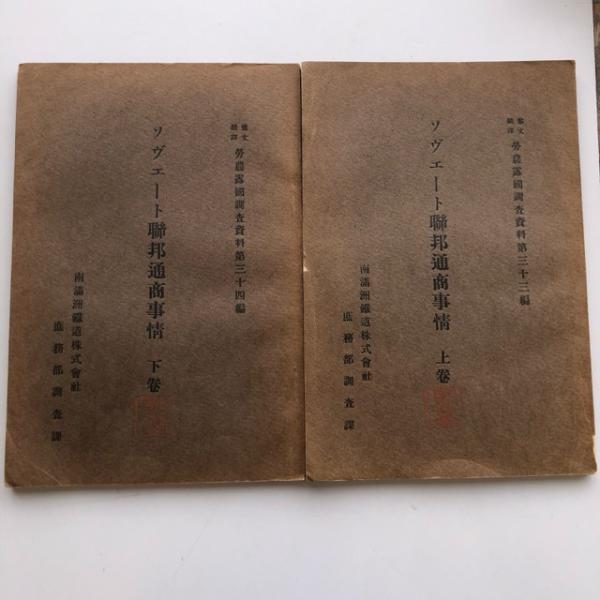 露文
翻譯
勞農露國調査資料第三十三編
ソヴェート聯邦通商事情 上卷
南滿洲鐵道株式會社
庶務部調査課
露文
翻譯
勞農露國調査資料第三十四編
ソヴェート聯邦通商事情 下卷
南滿洲鐵道株式會社
庶務部調査課